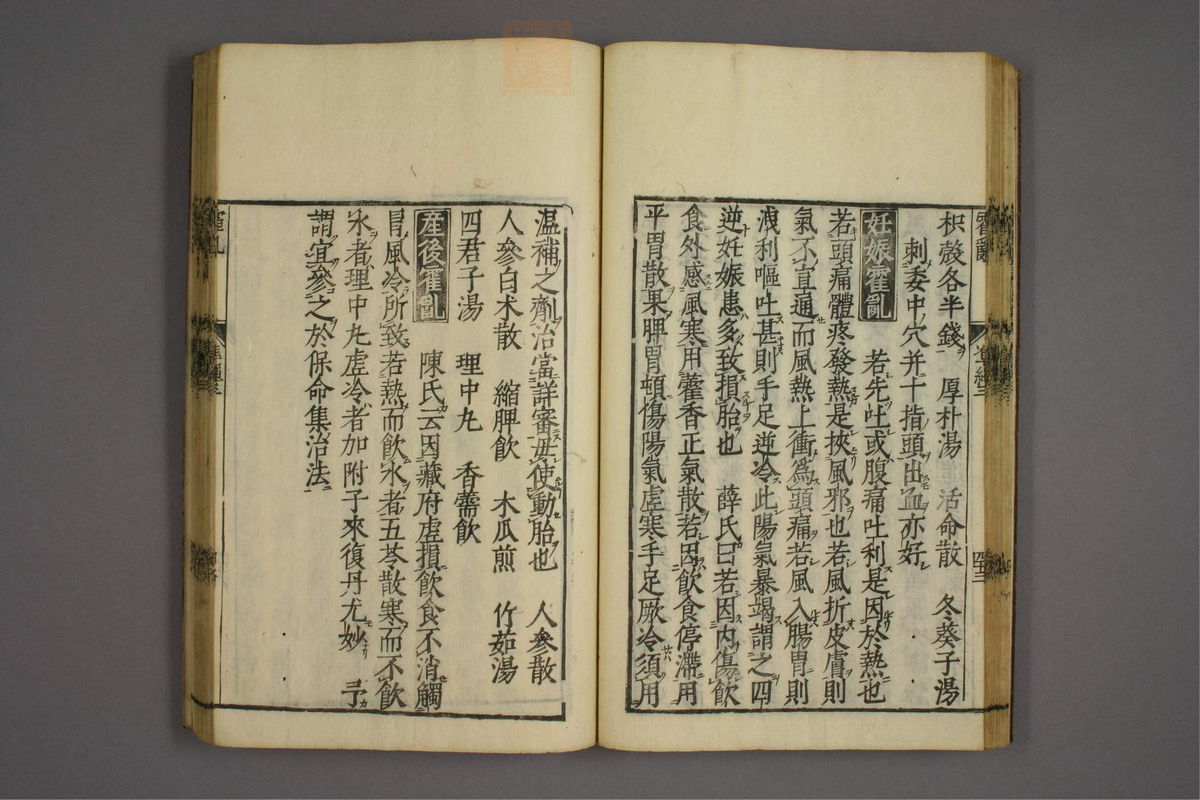 枳殻各半錢　厚朴湯　活命散　冬葵子湯
刺委中穴并十指頭出血亦好
妊娠霍亂　若先吐或腹痛吐利是因於熱也
若頭痛體疼發熱是挾風邪也若風折皮膚則
氣不宣通而風熱上衝為頭痛若風入腸胃則
洩利嘔吐甚則手足逆冷此陽氣暴竭謂之四
逆妊娠患多致損胎也　薛氏曰若因内傷飲
食外感風寒用藿香正氣散若因飲食停滯用
平胃散果脾胃頓傷陽氣虚寒手足厥冷須用
温補之劑治當詳審毋使動胎也　人參散
人參白朮散　縮脾飲　木瓜煎　竹茹湯
四君子湯　理中丸　香薷飲
産後霍亂　陳氏云因藏府虚損飲食不消觸
冒風冷所致若熱而飲水者五苓散寒而不飲
水者理中丸虚冷者加附子來復丹尤妙　予
謂宜參之於保命集治法